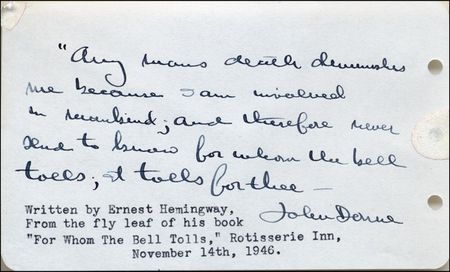 "Any mans death diminishes
me because I am involved
in mankind; and therefore never
send to know for whom the bell
tolls; it tolls for thee —
John Donne
Written by Ernest Hemingway,
From the fly leaf of his book
"For Whom The Bell Tolls," Rotisserie Inn,
November 14th, 1946.